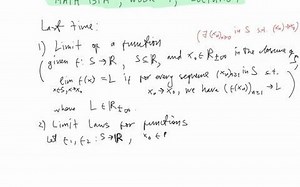 MATH 131A, WEEK 7, LECTURE 1
Last time:
1) Limit of a function
(given f: S→ℝ, S⊆ℝ, and x₀∈ℝ±∞ in the closure of
(∃ (xₙ)ₙ≥₁ in S s.t. (xₙ)→x₀)
lim f(x) = L if for every sequence (xₙ)ₙ≥₁ in S s.t.
x∈S, x→x₀
xₙ→x₀, we have (f(xₙ))ₙ≥₁ → L)
where L∈ℝ±∞
2) Limit Laws for functions
Let f₁, f₂ : S→ℝ, x₀∈